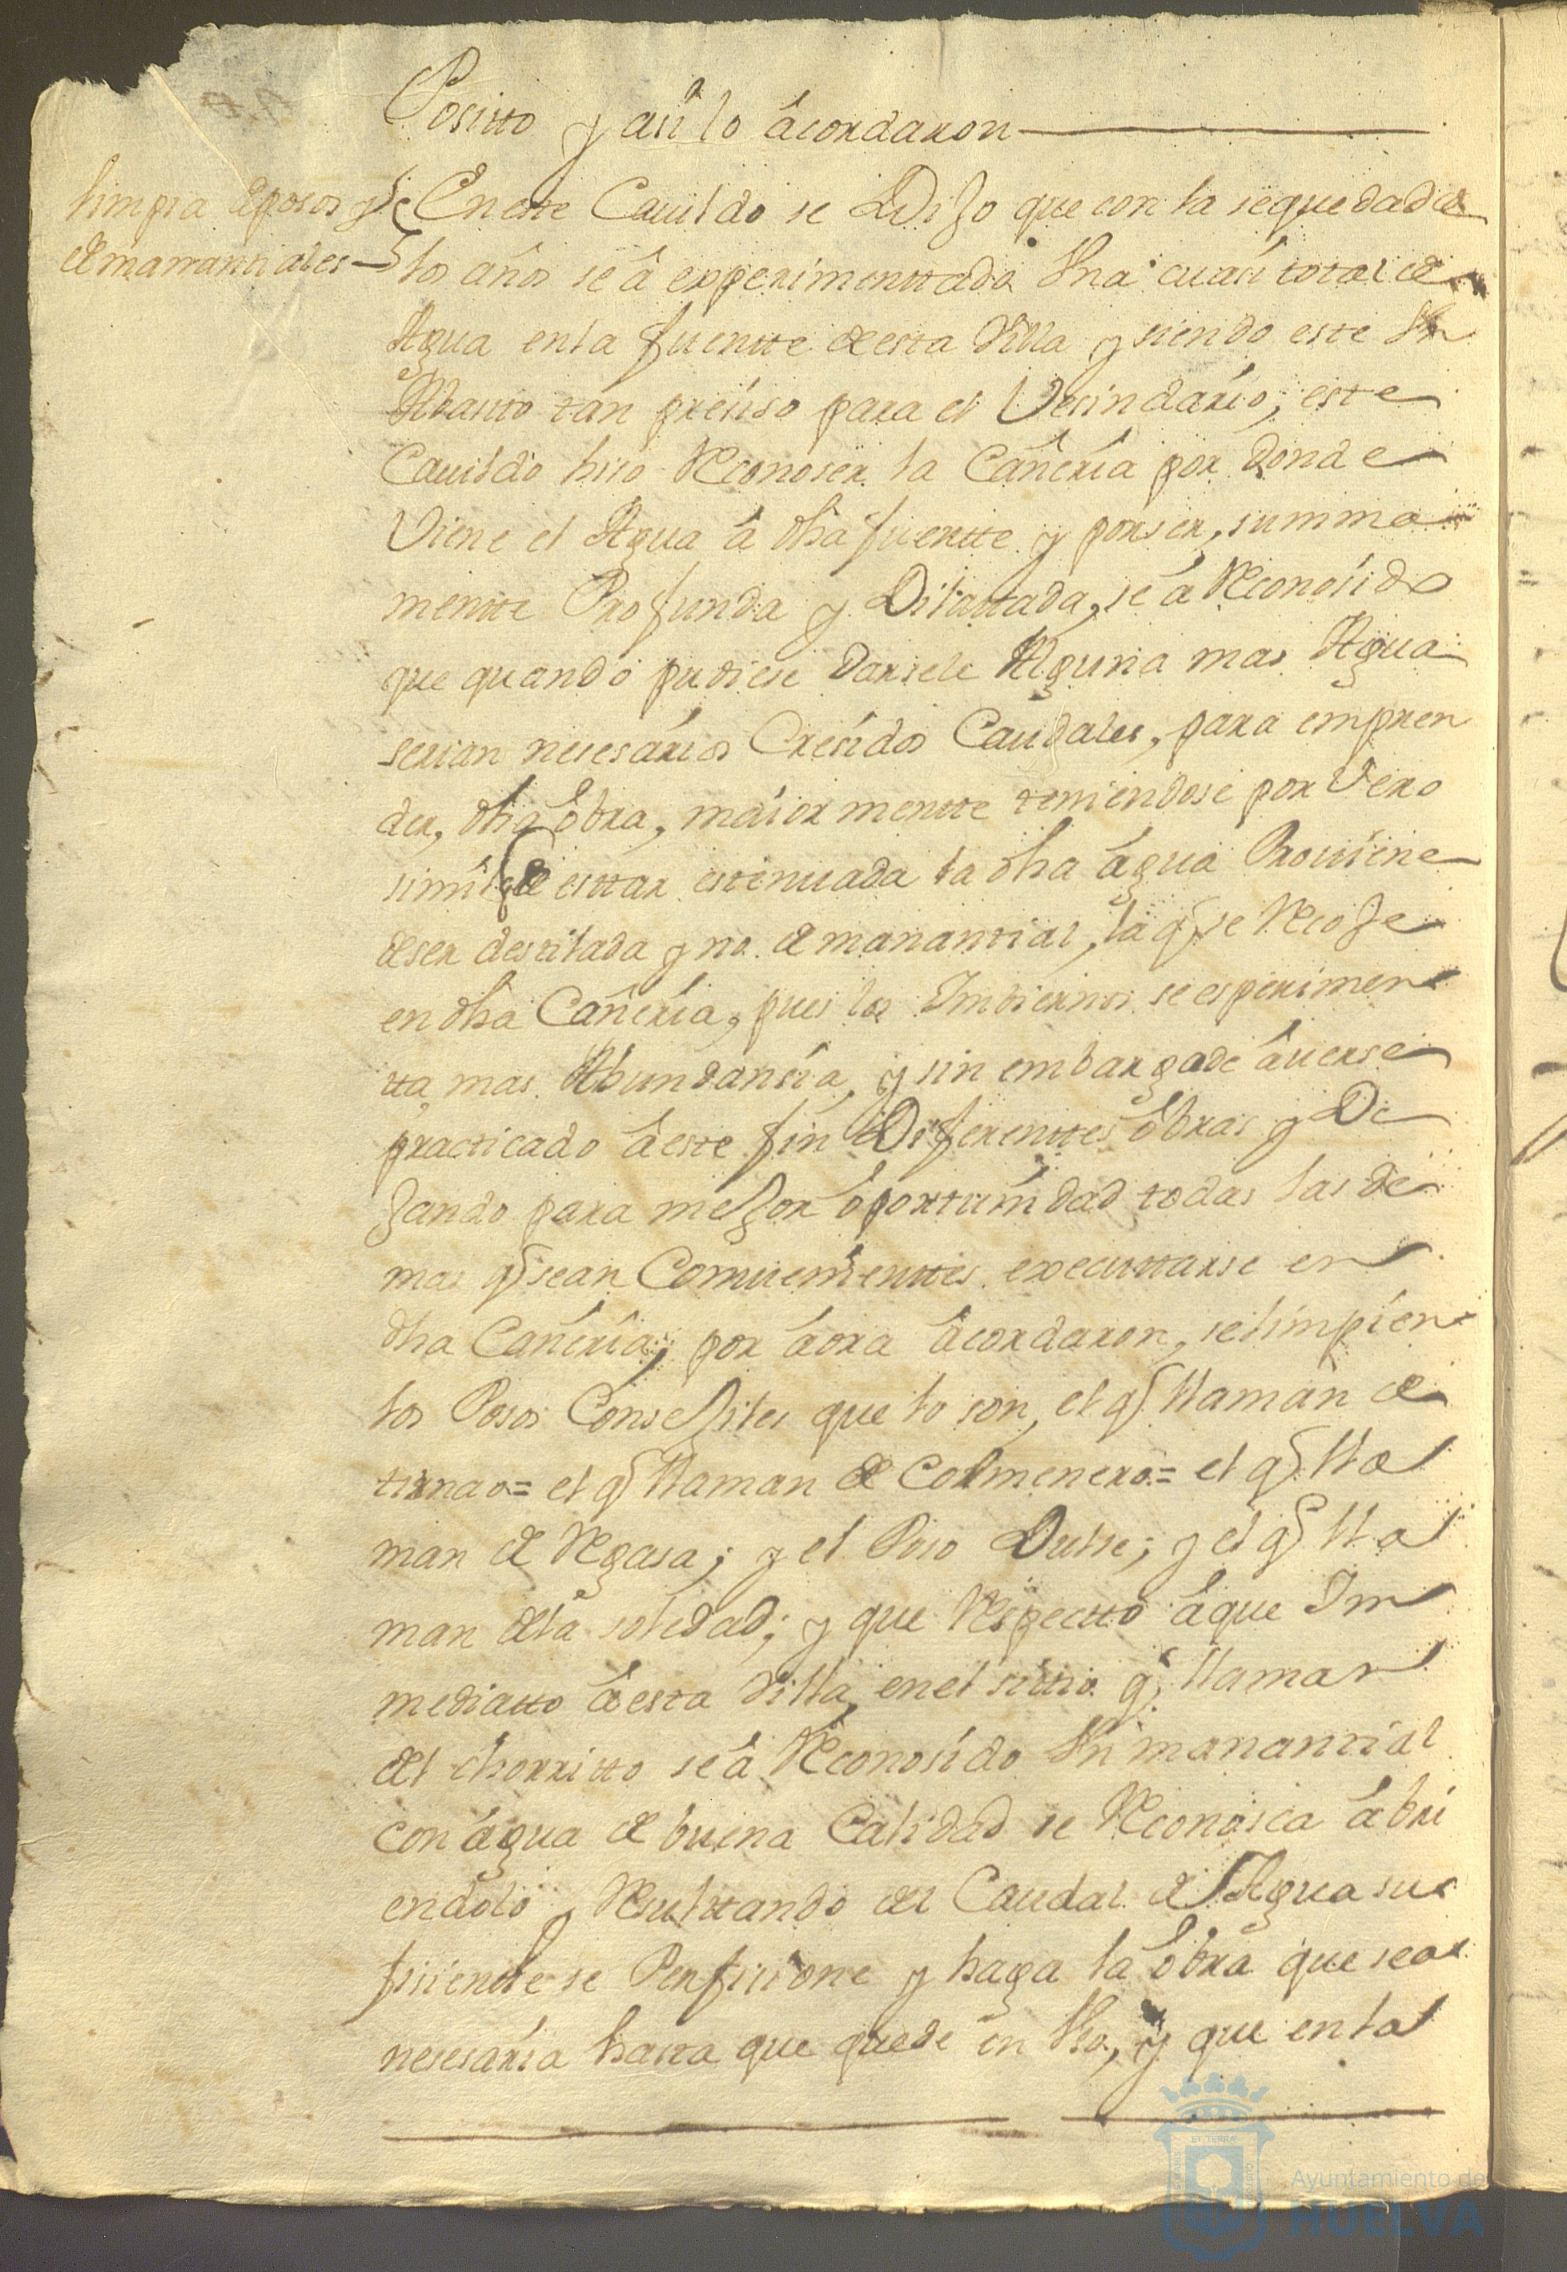 Positto y asi lo acordaron
limpia de posos y
de manantiales
En este Cauildo se Dijo que con la sequedad de
los años se â experimenttado Vna cuasi total de
Agua en la fuentte de esta Villa y siendo este Vn
Abasto tan presiso para el Vesindario, este
Cauildo hiso Reconoser la Cañeria por donde
Viene el Agua â dha fuentte y por ser, summa
mentte Profunda y Dilattada, se â Reconosido
que quando pudiese darsele Alguna mas Agua
serian nesesarios Cresidos Caudales, para empren
der, dha obra, maiormentte teniendose por Vero
simil qe esttar estenuada la dha agua Prouiene
de ser destilada y no de manantial, la q se Recoje
en dha Cañeria, pues los Imbiernos se esperimen
tta mas Abundansia, y sin embargo de âuerse
practicado â este fin Diferenttes obras y De
jando para mejor oportunidad todas las de
mas q sean Comuenienttes executtarse en
dha Cañeria; por âora âcordaron, se limpien
los Posos Consejiles que lo son, el q llaman de
tirnao= el q llaman de Colmenero= el q lla
man de Regasa; y el Poso Dulse; y el q lla
man de la soledad; y que Respectto âque Im
mediatto âesta Villa, en el sittio q llaman
del chorritto se â Reconosido Vn manantial
con agua de buena Calidad se Reconosca âbri
endolo y Resulttando del Caudal de Agua su
fisientte se Perfisione y haga la obra que sea
nesesaria hasta que quede en Vso, y que en la
Ayuntamiento de
HUELVA